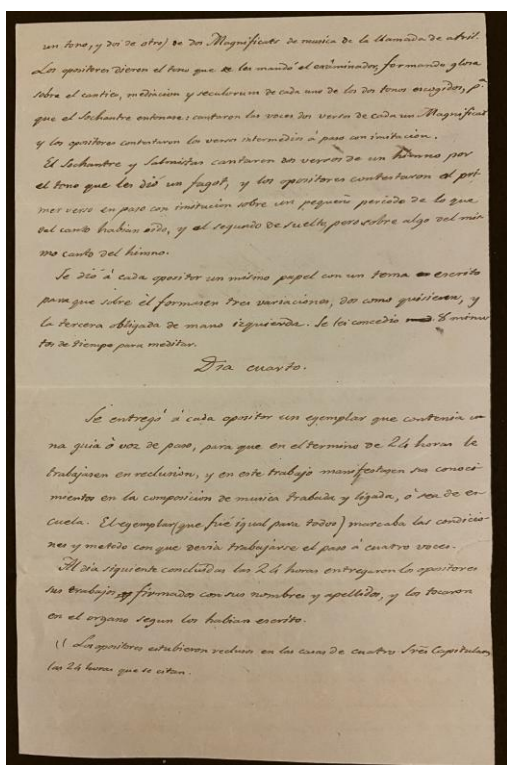 un tono, y dos de otro) de dos Magnificats de musica de la llamada de atril.
Los opositores dieron el tono que se les mandó el examinador, formando glosa
sobre el cantico, mediacion y seculorum de cada uno de los dos tonos escogidos, pª
que el Sochantre entonase: cantaron las voces dos versos de cada un Magnificat
y los opositores contestaron los versos intermedios á paso con imitacion.
El Sochantre y Salmistas cantaron dos versos de un himno por
el tono que les dió un fagot, y los opositores contestaron al pri-
mer verso en paso con imitacion sobre un pequeño periodo de lo que
del canto habian oido, y el segundo de suelto, pero sobre algo del mis-
mo canto del himno.
Se dió á cada opositor un mismo papel con un tema escrito
para que sobre el formasen tres variaciones, dos como quisiesen, y
la tercera obligada de mano izquierda. Se les concedio 8 minu-
tos de tiempo para meditar.
Dia cuarto.
Se entregó á cada opositor un ejemplar que contenia u-
na guia ò voz de paso, para que en el termino de 24 horas le
trabajasen en reclusion, y en este trabajo manifestasen sus conoci-
mientos en la composicion de musica trabada y ligada, ó sea de es-
cuela. El ejemplar (que fué igual para todos) marcaba las condicio-
nes y metodo con que devia trabajarse el paso á cuatro voces.
Al dia siguiente concluidas las 24 horas entregaron los opositores
sus trabajos, firmados con sus nombres y apellidos, y los tocaron
en el organo segun los habian escrito.
Los opositores estubieron reclusos en las casas de cuatro Sres Capitulares
las 24 horas que se citan.